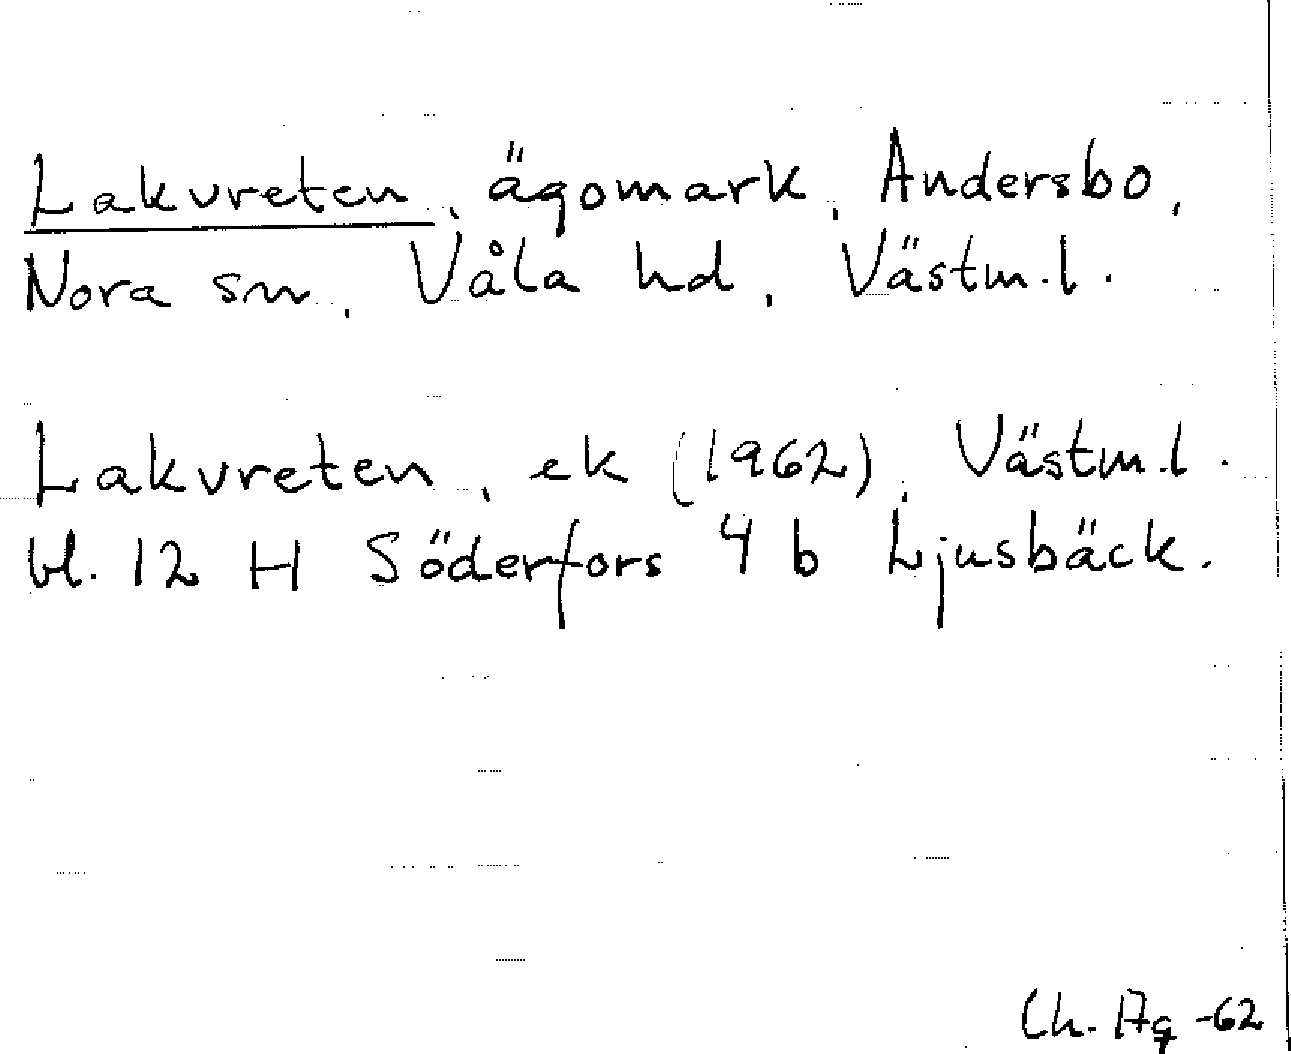 Lakvreten, ägomark, Andersbo,
Nora sn, Våla hd, Västm.l.
Lakvreten, ek (1962), Västm.l.
bl. 12 H Söderfors 4 b Ljusbäck.
Ch. Ag -62